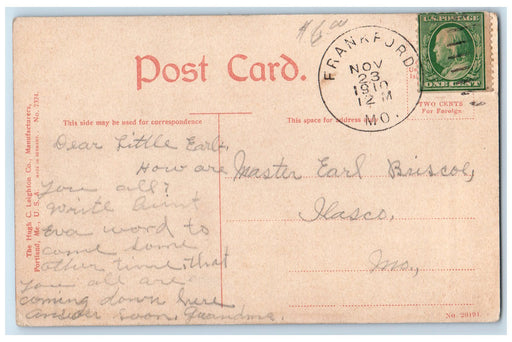 $6.00
Post Card.
FRANKFORD
NOV
23
1910
12 M
MO.
U.S. POSTAGE
ONE CENT
TWO CENTS
For Foreign.
This side may be used for correspondence
This space for address
The Hugh C. Leighton Co., Manufacturers,
Portland, Me., U. S. A. MADE IN GERMANY. No. 7324.
Dear Little Earl,
How are
you all?
Write Aunt
Eva word to
come some
other time, that
you all are
coming down here
answer soon. Grandma.
Master Earl Briscoe,
Ilasco,
Mo,
No. 29191